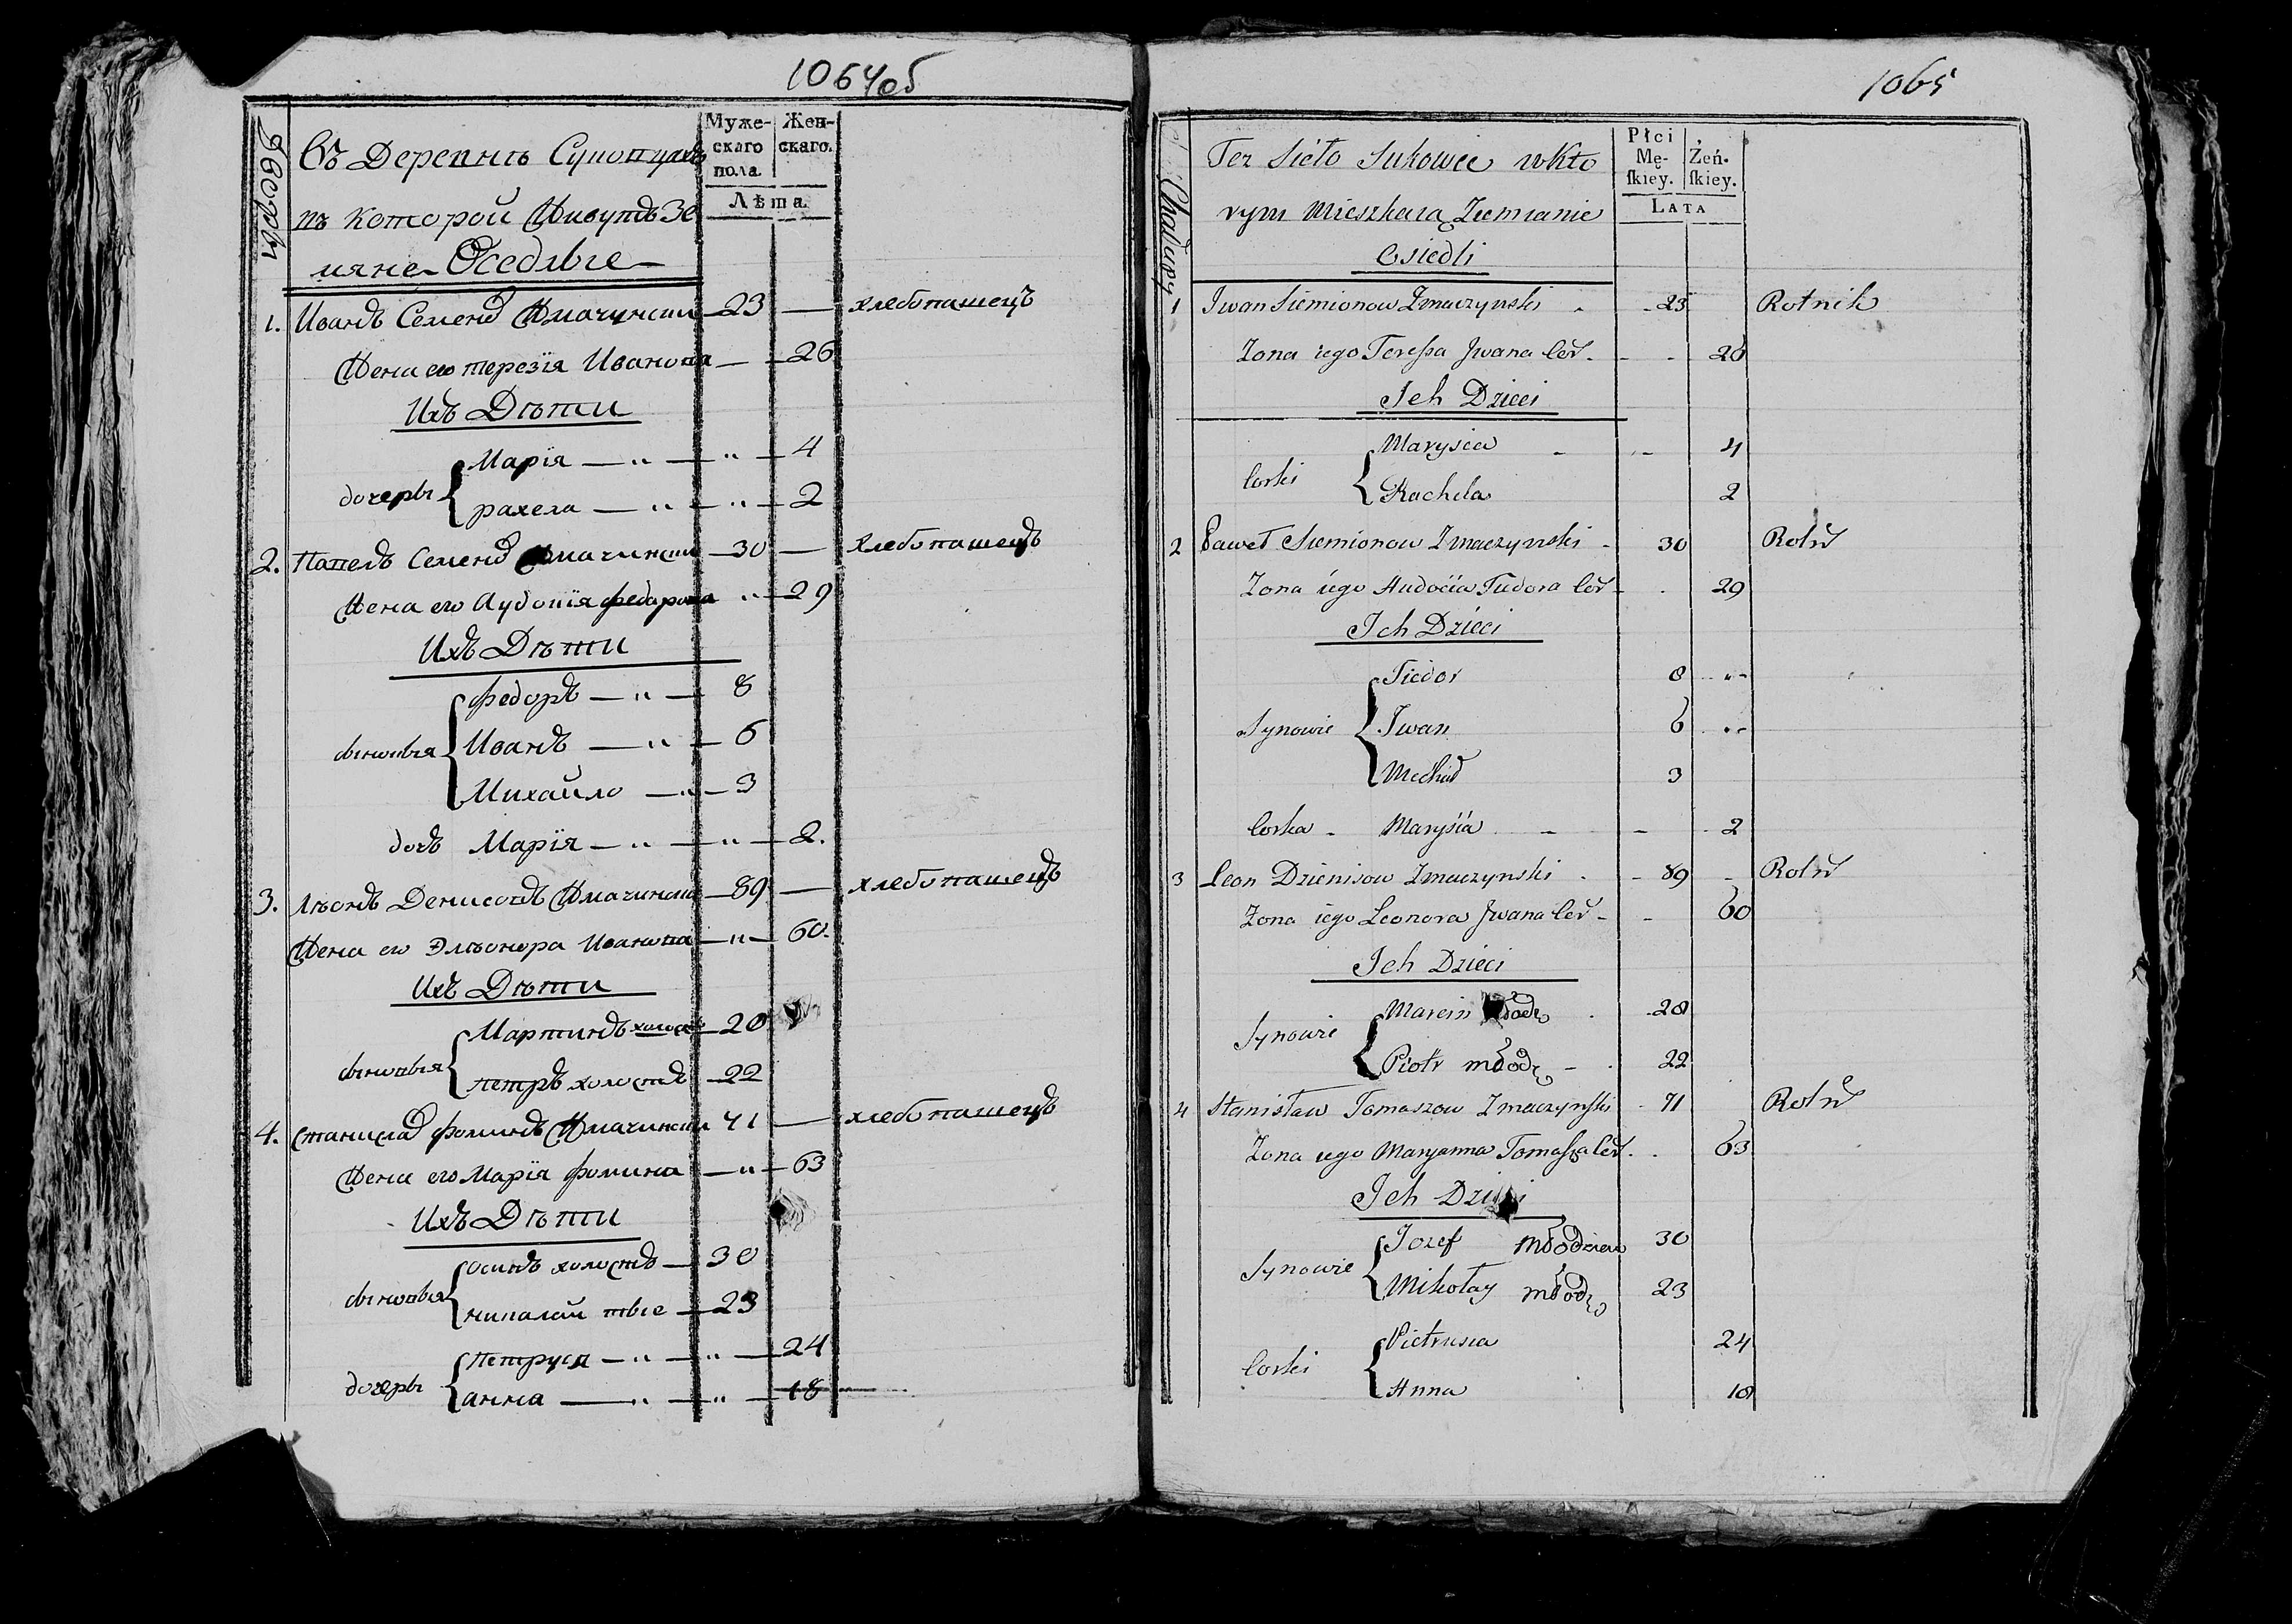 1064об
Дворы
Въ Деревнѣ
Муже-
скаго
пола.
Жен-
скаго.
Лѣта.
въ которой Живутъ Зе
мяне Оседлые
1. Иванъ Семенов Жмачинский 23 — хлебопашецъ
Жена его терезiя Иванова — 26
Ихъ Дѣти
дочеры
Марiя — " — " — 4
рахела — " — " — 2
2. Павелъ Семенов Жмачинский 30 — хлебопашецъ
Жена его Аудотiя федорова " 29
Ихъ Дѣти
сыновья
федоръ — " — 8
Иванъ — " — 6
Михайло — " — 3
дочь Марiя — " — " — 2.
3. Лѣонъ Денисовъ Жмачинский 89 — хлебопашецъ
Жена его Элѣонора Иванова — " — 60.
Ихъ Дѣти
сыновья
Мартинъ холостъ 28
петръ холостъ 22
4. станислав фоминъ Жмачинский 71 — хлебопашецъ
Жена его Марiя фомина — " — 63
Ихъ Дѣти
сыновья
осипъ холостъ — 30
николай — 23
дочеры
петруся — " — " — 24
анна — " — " — 18
1065
Chałupy
Ter Sieło Sukowce w Kto
Płci
Mę-
skiey.
Żeń-
skiey.
LATA
rym Mieszkaią Ziemianie
Osiedli
1 Iwan Siemionow Zmaczynski 23 Rolnik
Zona iego Teressa Jwana Cór. 26
Ich Dzieci
Corki
Marysia 4
Rachela 2
2 Paweł Siemionow Zmaczynski 30 Roln
Zona iego Audocia Fiedora Cor 29
Ich Dzieci
Synowie
Fiedor 8
Iwan 6
Michał 3
Corka Marysia 2
3 Leon Dzienisow Zmaczynski 89 Roln
Zona iego Leonora Jwana Cor 60
Ich Dzieci
Synowie
Marcin młodz 28
Piotr młodz 22
4 Stanisław Tomaszow Zmaczynski 71 Roln
Zona iego Maryanna Tomasza Cor. 63
Ich Dzieci
Synowie
Jozef Młodzien 30
Mikołay młodz 23
Corki
Pietrusia 24
Anna 18